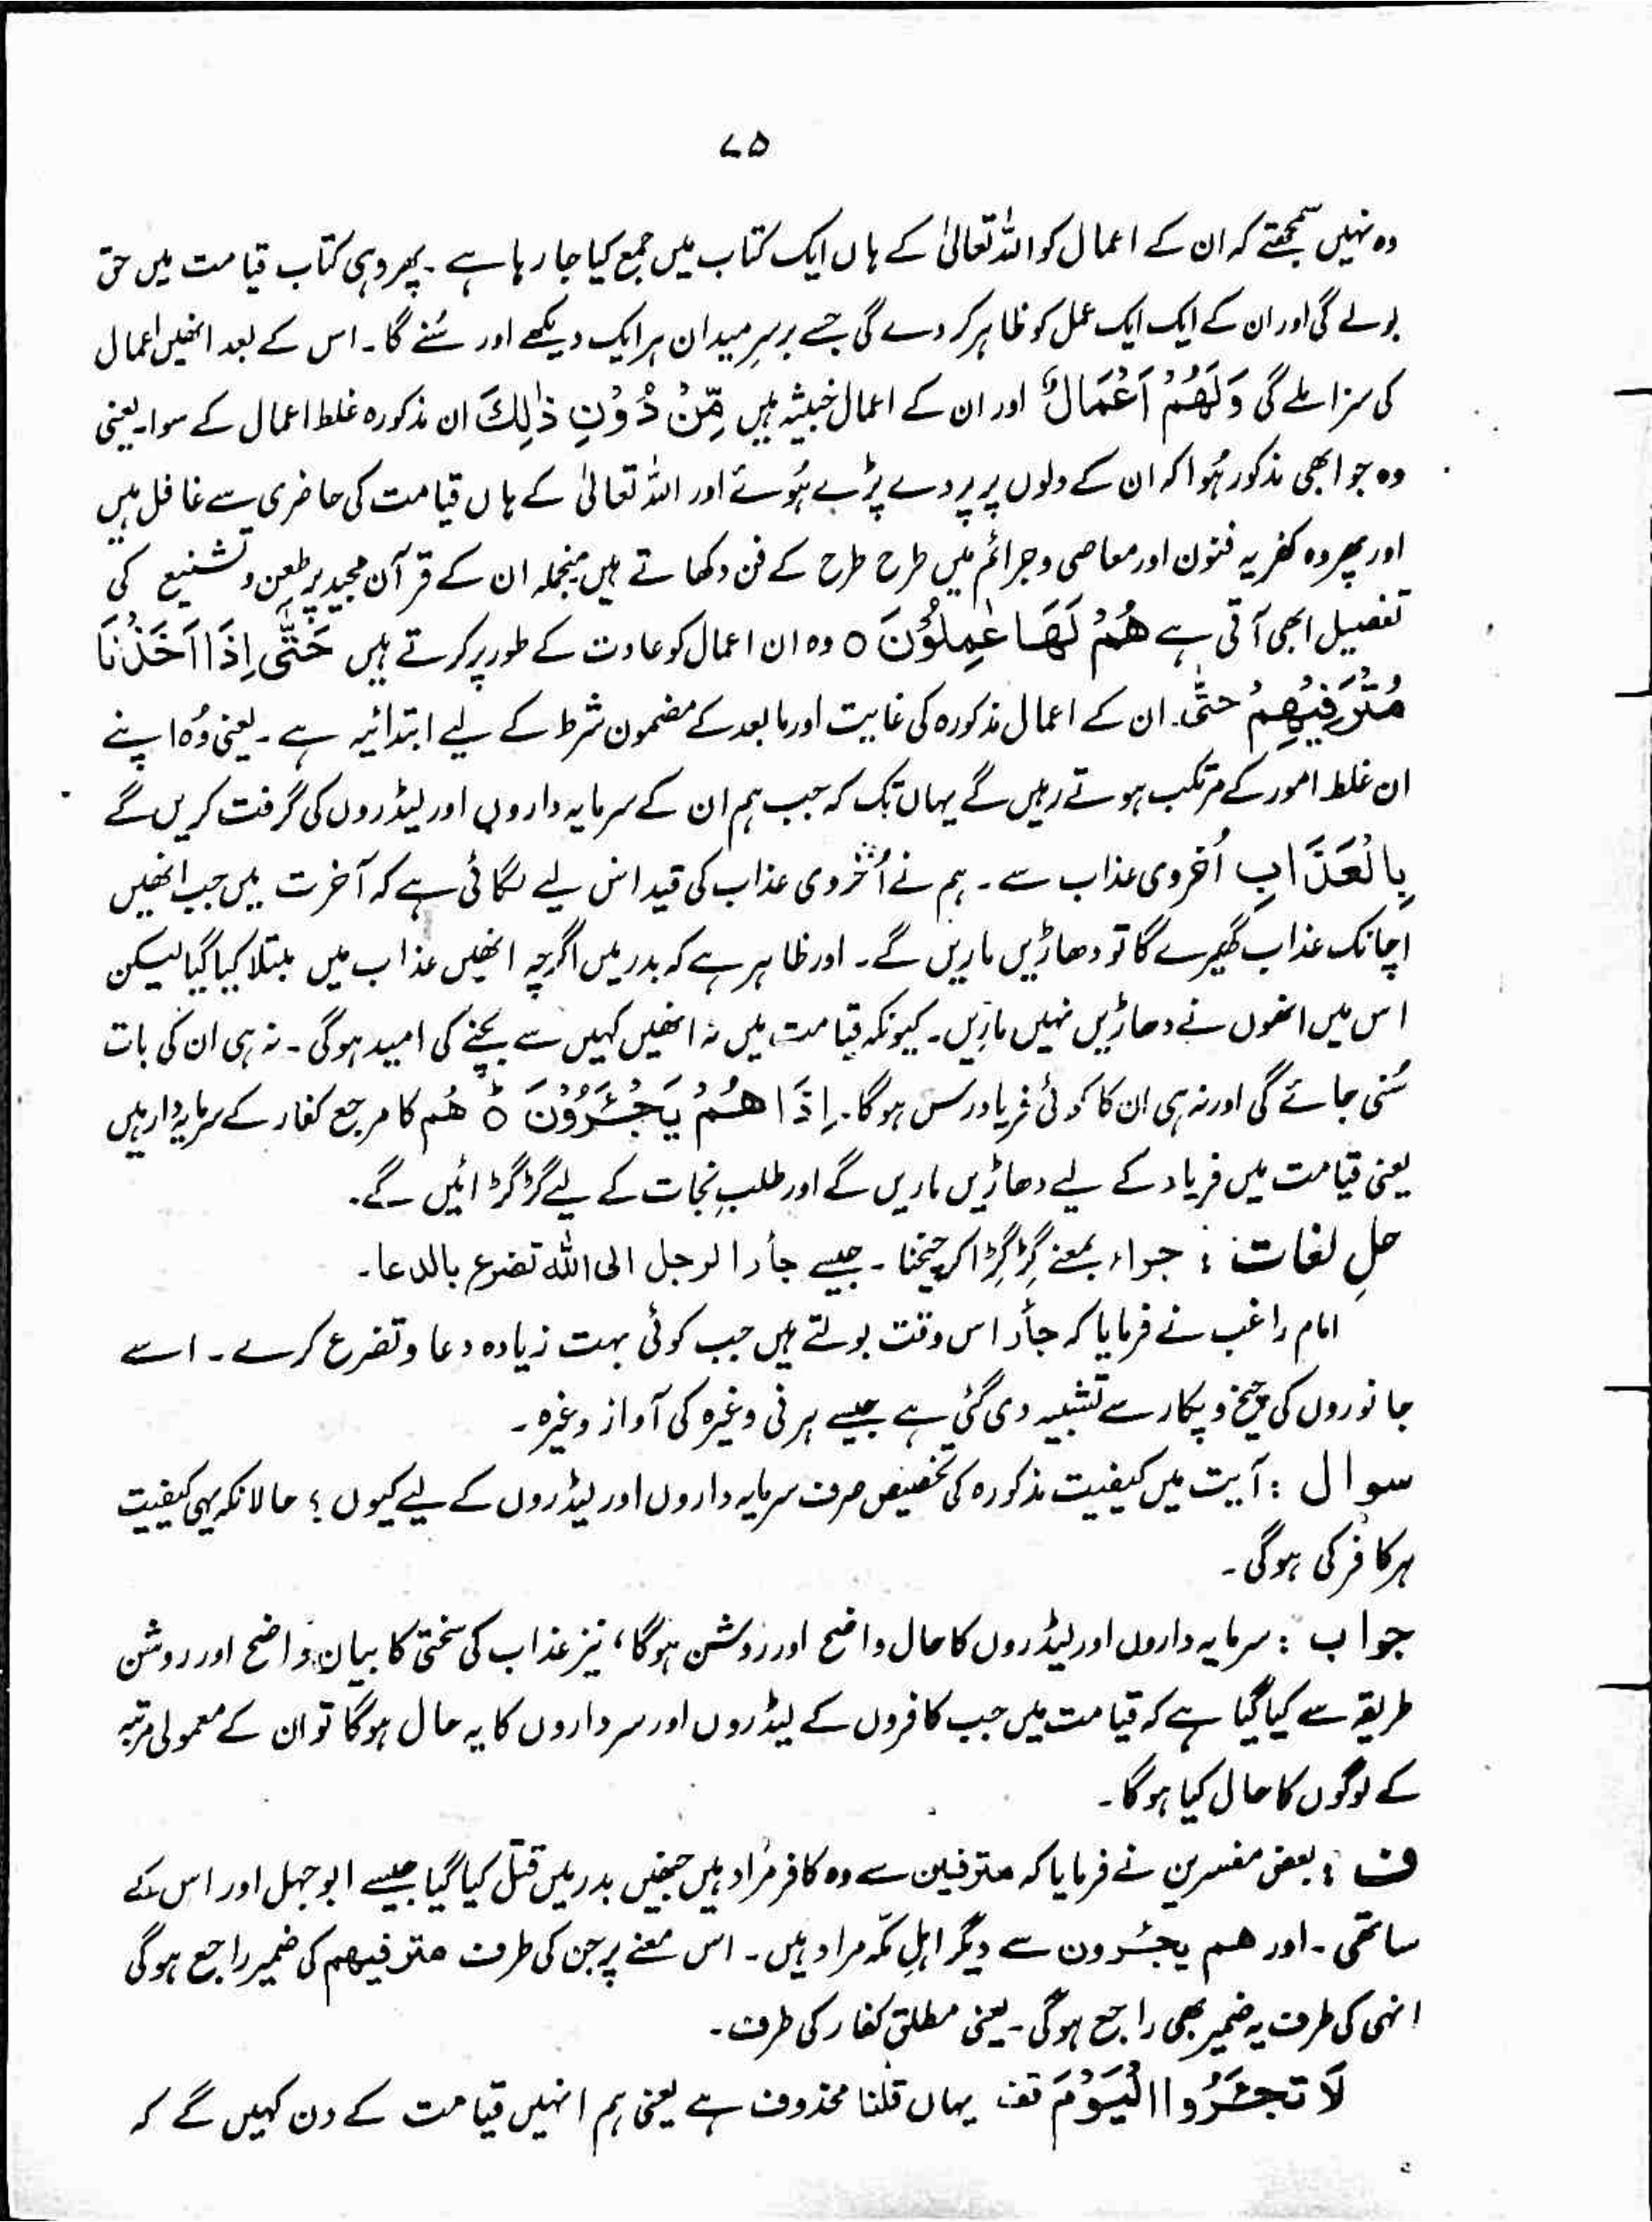 ۷۵
وہ نہیں سمجھتے کہ ان کے اعمال کو اللہ تعالیٰ کے ہاں ایک کتاب میں جمع کیا جا رہا ہے ۔ پھر وہی کتاب قیامت میں حق
بولے گی اور ان کے ایک ایک عمل کو ظاہر کر دے گی جسے برسرِ میدان ہر ایک دیکھے اور سُنے گا۔ اس کے بعد انھیں اعمال
کی سزا ملے گی وَلَهُمْ اَعْمَالٌ اور ان کے اعمال خبیثہ ہیں مِّنْ دُوْنِ ذٰلِكَ ان مذکورہ غلط اعمال کے سوا۔ یعنی
وہ جو ابھی مذکور ہُوا کہ ان کے دلوں پر پردے پڑے ہُوئے اور اللہ تعالیٰ کے ہاں قیامت کی حاضری سے غافل ہیں
اور پھر وہ کفریہ فنون اور معاصی و جرائم میں طرح طرح کے فن دکھاتے ہیں منجملہ ان کے قرآن مجید پر طعن و تشنیع کی
تفصیل ابھی آتی ہے هُمْ لَهَا عٰمِلُوْنَ ○ وہ ان اعمال کو عادت کے طور پر کرتے ہیں حَتّٰی اِذَا اَخَذْنَا
مُتْرَفِيْهِمْ حتّٰی۔ ان کے اعمال مذکورہ کی غایت اور مابعد کے مضمون شرط کے لیے ابتدائیہ ہے ۔ یعنی وُہ اپنے
ان غلط امور کے مرتکب ہوتے رہیں گے یہاں تک کہ جب ہم ان کے سرمایہ داروں اور لیڈروں کی گرفت کریں گے
بِالْعَذَابِ اُخروی عذاب سے ۔ ہم نے اُخروی عذاب کی قید اس لیے لگائی ہے کہ آخرت میں جب انھیں
اچانک عذاب گھیرے گا تو دھاڑیں ماریں گے۔ اور ظاہر ہے کہ بدر میں اگرچہ انھیں عذاب میں مبتلا کیا گیا لیکن
اس میں انھوں نے دھاڑیں نہیں ماریں۔ کیونکہ قیامت میں نہ انھیں کہیں سے بچنے کی امید ہوگی ۔ نہ ہی ان کی بات
سُنی جائے گی اور نہ ہی ان کا کوئی فریاد رس ہوگا۔ اِذَا هُمْ يَجْـَٔرُوْنَ ○ هُم کا مرجع کفار کے سرمایہ دار ہیں
یعنی قیامت میں فریاد کے لیے دھاڑیں ماریں گے اور طلبِ نجات کے لیے گڑگڑائیں گے۔
حلِ لغات : جواء بمعنے گِڑگِڑا کر چیخنا ۔ جیسے جأر الرجل الی اللہ تضرع بالدعا۔
امام راغب نے فرمایا کہ جأر اس وقت بولتے ہیں جب کوئی بہت زیادہ دعا و تضرع کرے ۔ اسے
جانوروں کی چیخ و پکار سے تشبیہ دی گئی ہے جیسے ہرنی وغیرہ کی آواز وغیرہ ۔
سوال : آیت میں کیفیت مذکورہ کی تخصیص صرف سرمایہ داروں اور لیڈروں کے لیے کیوں ؟ حالانکہ یہی کیفیت
ہر کافر کی ہوگی ۔
جواب : سرمایہ داروں اور لیڈروں کا حال واضح اور روشن ہوگا، نیز عذاب کی سختی کا بیان واضح اور روشن
طریقہ سے کیا گیا ہے کہ قیامت میں جب کافروں کے لیڈروں اور سرداروں کا یہ حال ہوگا تو ان کے معمولی مرتبہ
کے لوگوں کا حال کیا ہوگا ۔
ف : بعض مفسرین نے فرمایا کہ مترفین سے وہ کافر مُراد ہیں جنھیں بدر میں قتل کیا گیا جیسے ابوجہل اور اس کے
ساتھی ۔ اور هم یجئرون سے دیگر اہلِ مکّہ مراد ہیں ۔ اس معنے پر جن کی طرف مترفیهم کی ضمیر راجع ہوگی
انہی کی طرف یہ ضمیر بھی راجع ہوگی۔ یعنی مطلق کفار کی طرف ۔
لَا تَجْـَٔرُوا الْيَوْمَ قف یہاں قلنا محذوف ہے یعنی ہم انہیں قیامت کے دن کہیں گے کہ